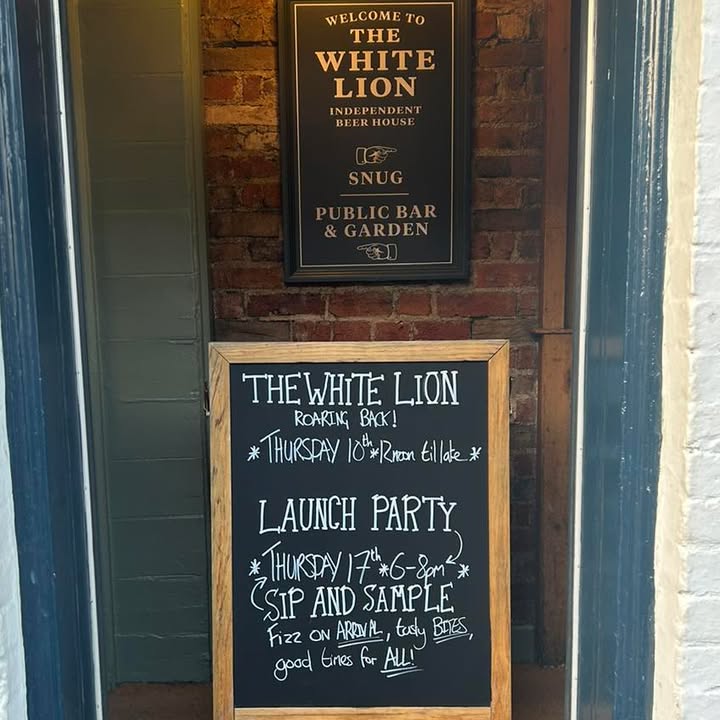 WELCOME TO
THE
WHITE
LION
INDEPENDENT
BEER HOUSE
SNUG
PUBLIC BAR
& GARDEN
THE WHITE LION
ROARING BACK!
* THURSDAY 10th * 12noon till late *
LAUNCH PARTY
* THURSDAY 17th * 6-8pm *
SIP AND SAMPLE
Fizz on ARRIVAL, tasty BITES,
good times for ALL!